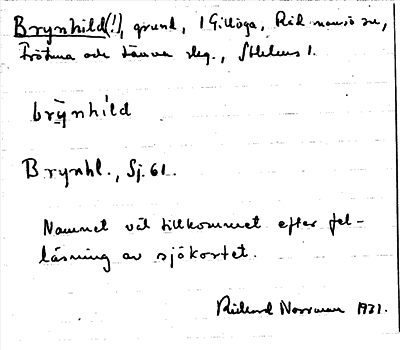 Brynhild(!), grund, i Gillöga, Rådmansö sn,
Frötuna och Länna skg., Sthlms l.
brynhild
Brynhl., Sj. 61.
Namnet väl tillkommet efter fel-
läsning av sjökortet.
Rickard Norrman 1931.